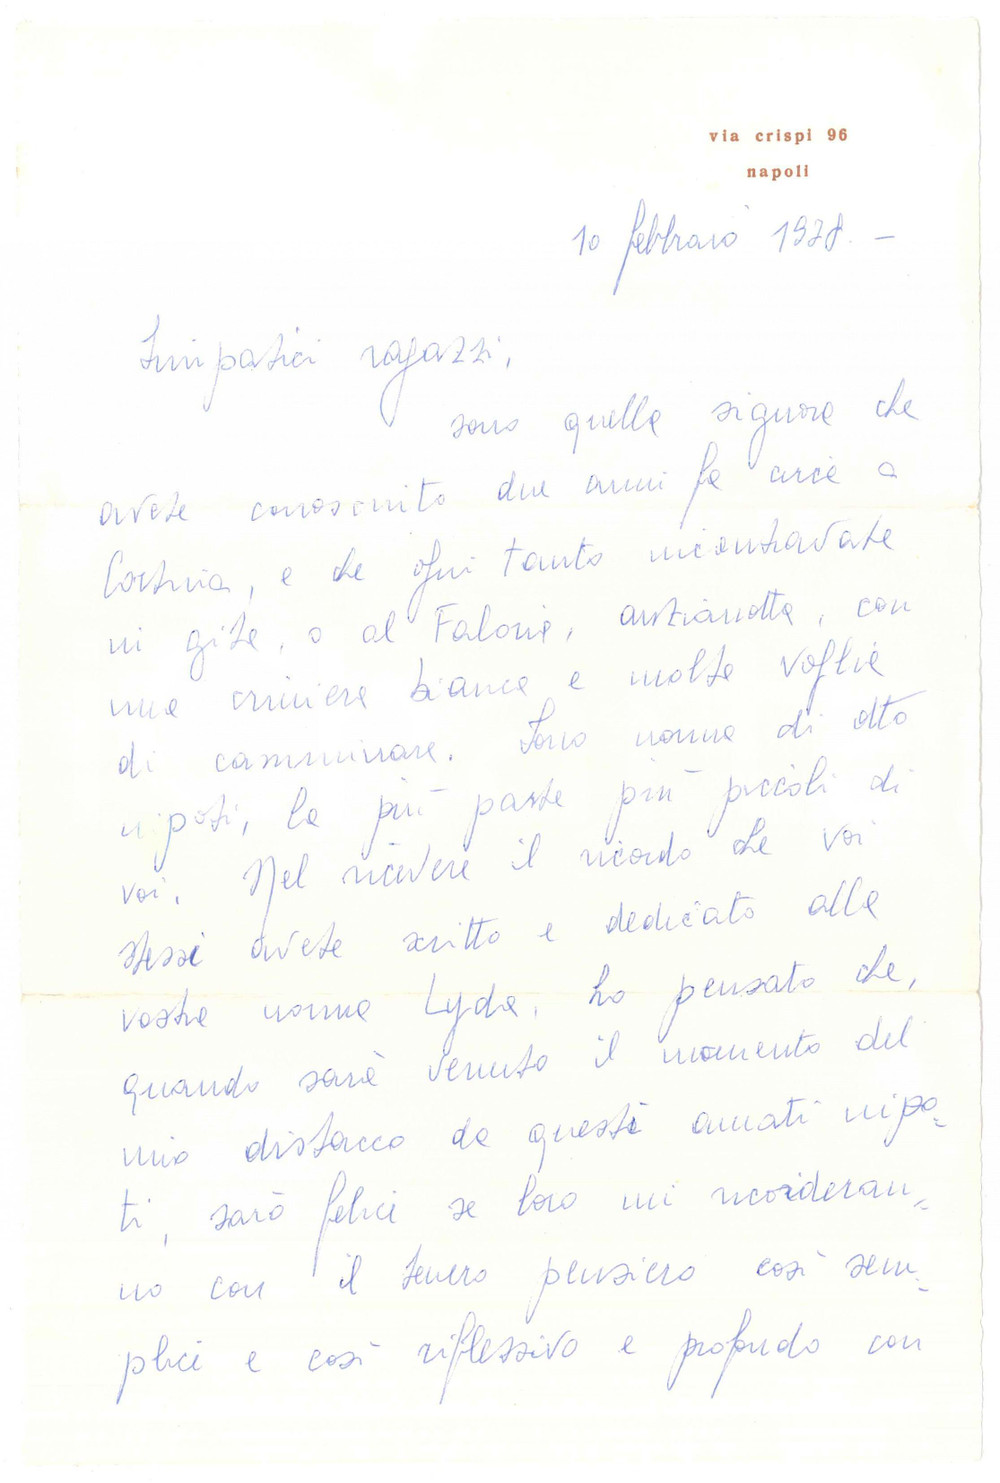 via crispi 96
napoli
10 febbraio 1978. –
Simpatici ragazzi,
sono quella signora che
avete conosciuto due anni fa circa a
Cortina, e che ogni tanto incontravate
in gita, o al Faloria, anzianotta, con
una criniera bianca e molta voglia
di camminare. Sono nonna di otto
nipoti, la più parte più piccoli di
voi. Nel ricevere il ricordo che voi
stessi avete scritto e dedicato alla
vostra nonna Lyda, ho pensato che,
quando sarà venuto il momento del
mio distacco da questi amati nipo=
ti, sarò felice se loro mi ricorderan=
no con il tenero pensiero così sem=
plice e così riflessivo e profondo con